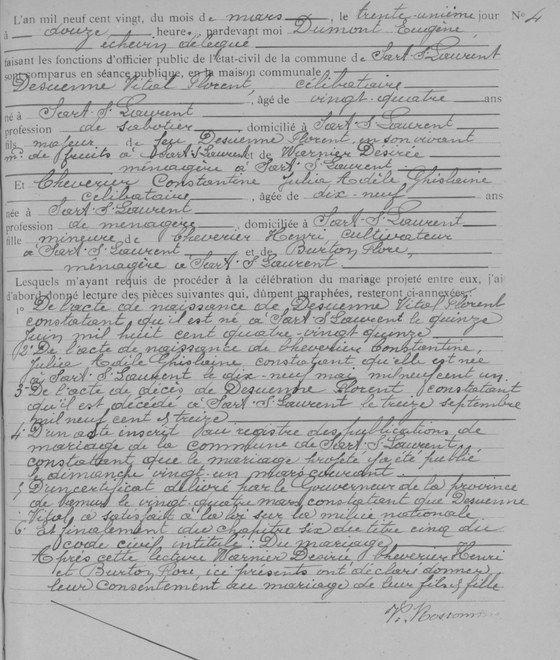 L'an mil neuf cent vingt, du mois de mars, le trente-unième jour N° 4
à douze heure, pardevant moi Dumont Eugène
échevin délégué
faisant les fonctions d'officier public de l'état-civil de la commune de Sart-S-Laurent
sont comparus en séance publique, en la maison communale :
Desuenne Vital Florent, célibataire
, âgé de vingt-quatre ans
né à Sart-S-Laurent
profession de sabotier, domicilié à Sart-S-Laurent
fils majeur de feu Desuenne Florent en son vivant
md de fruits à Sart-S-Laurent et de Warnier Désirée
ménagère à Sart-S-Laurent
Et Cheverier Constantine Julia Adèle Ghislaine
célibataire, âgée de dix-neuf ans
née à Sart-S-Laurent
profession de ménagère, domiciliée à Sart-S-Laurent
fille mineure de Cheverier Henri, cultivateur
à Sart-S-Laurent et de Burton Flore,
ménagère à Sart-S-Laurent
Lesquels m'ayant requis de procéder à la célébration du mariage projeté entre eux, j'ai
d'abord donné lecture des pièces suivantes qui, dûment paraphées, resteront ci-annexées:
1° De l'acte de naissance de Desuenne Vital Florent
constatant qu'il est né à Sart-S-Laurent le quinze
juin mil huit cent quatre vingt quinze
2° De l'acte de naissance de Cheverier Constantine,
Julia Adèle Ghislaine constatant qu'elle est née
à Sart-S-Laurent le dix neuf mai mil neuf cent un
3° De l'acte de décès de Desuenne Florent, constatant
qu'il est décédé à Sart-S-Laurent le treize septembre
mil neuf cent treize
4° D'un acte inscrit au registre des publications de
mariage de la commune de Sart-S-Laurent,
constatant que le mariage projeté a été publié
le dimanche vingt-un mars courant
5° D'un certificat délivré par le Gouverneur de la province
de Namur le vingt-quatre mars constatant que Desuenne
Vital a satisfait à la loi sur la milice nationale
6° Et finalement du chapitre six du titre cinq du
code civil, intitulé: Du mariage,
Après cette lecture Warnier Désirée, Cheverier Henri
et Burton Flore, ici présents ont déclaré donner
leur consentement au mariage de leur fils & fille